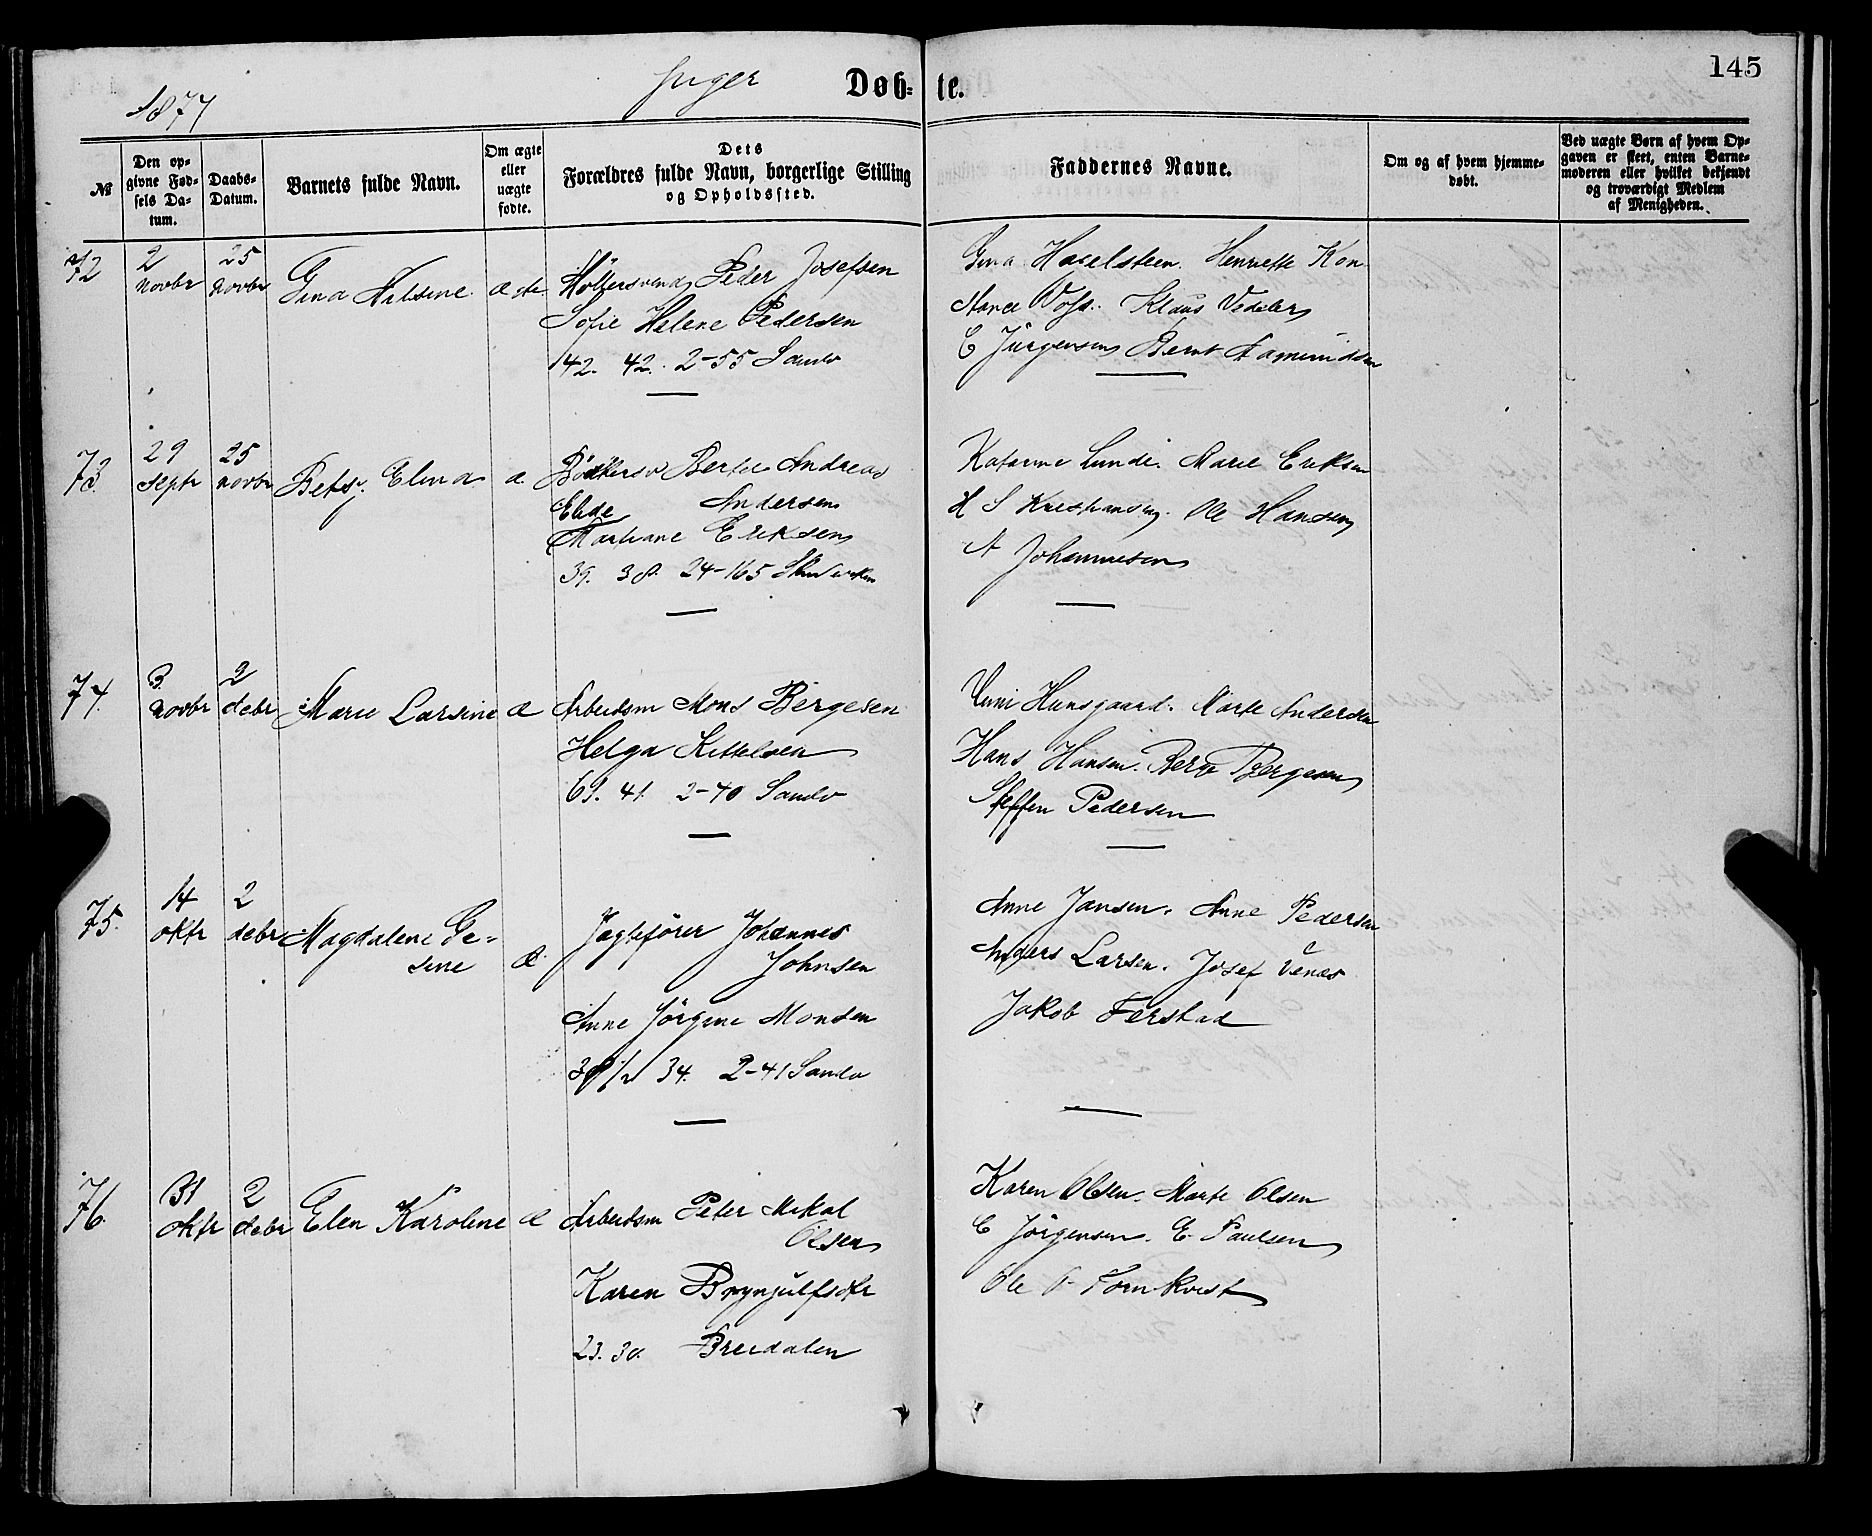 145
1877
Piger
Døb=te.
№
Den op=
givne Fød=
sels Da=
tum.
Daabs=
Datum.
Barnets fulde Navn.
Om ægte
eller
uægte
fødte.
Dets
Forældres fulde Navn, borgerlige Stilling
og Opholdssted.
Faddernes Navne.
Om og af hvem hjemme=
døbt.
Ved uægte Børn af hvem Op=
gaven er skeet, enten Barne=
moderen eller hvilket bekjendt
og troværdigt Medlem
af Menigheden.
72
2
novbr
25
novbr
Gina
Peder Josefsen
Sofie Helene Pedersen
42. 42. 2-55 Sandv
Gina Henriette Kon
Klaus Vedeler
C Jürgensen Bernt Aamundsen
73.
29
septr
25
novbr
Betsy Elina
æ
Andreas
Andersen
Martiane Eriksen
39. 38. 24-165
Katarine Lunde. Marie Eriksen
H S Kristiansen. Ole Hansen
A Johannesen
74.
3.
novbr
2
debr
Marie Larsine
æ
Arbeidsm Mons Bergesen
Helga Kittelsen
69. 41. 2-40 Sandv
Marte Andersen
Hans Hansen. Berge Bergesen
Steffen Pedersen
75.
14
oktr
2
debr
Magdalene Ge=
sine
æ.
Jagtefører Johannes
Johnsen
Anne Jörgine Monsen
34. 2-41 Sandv
Anne Jansen. Anne Pedersen
Anders Larsen. Josef Venæs
Jakob Ferstad
76.
31
oktr
2
debr
Elen Karoline
æ
Arbeidsm Peter Mikal
Olsen
Karen Brynjulfsdtr
23. 30. Breidalen
Karen Olsen. Marte Olsen
C Jörgensen. E. Paulsen
Ole